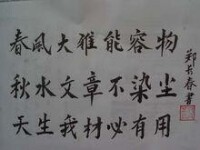 春風大雅能容物
秋水文章不染尘
天生我材必有用
郑长春書